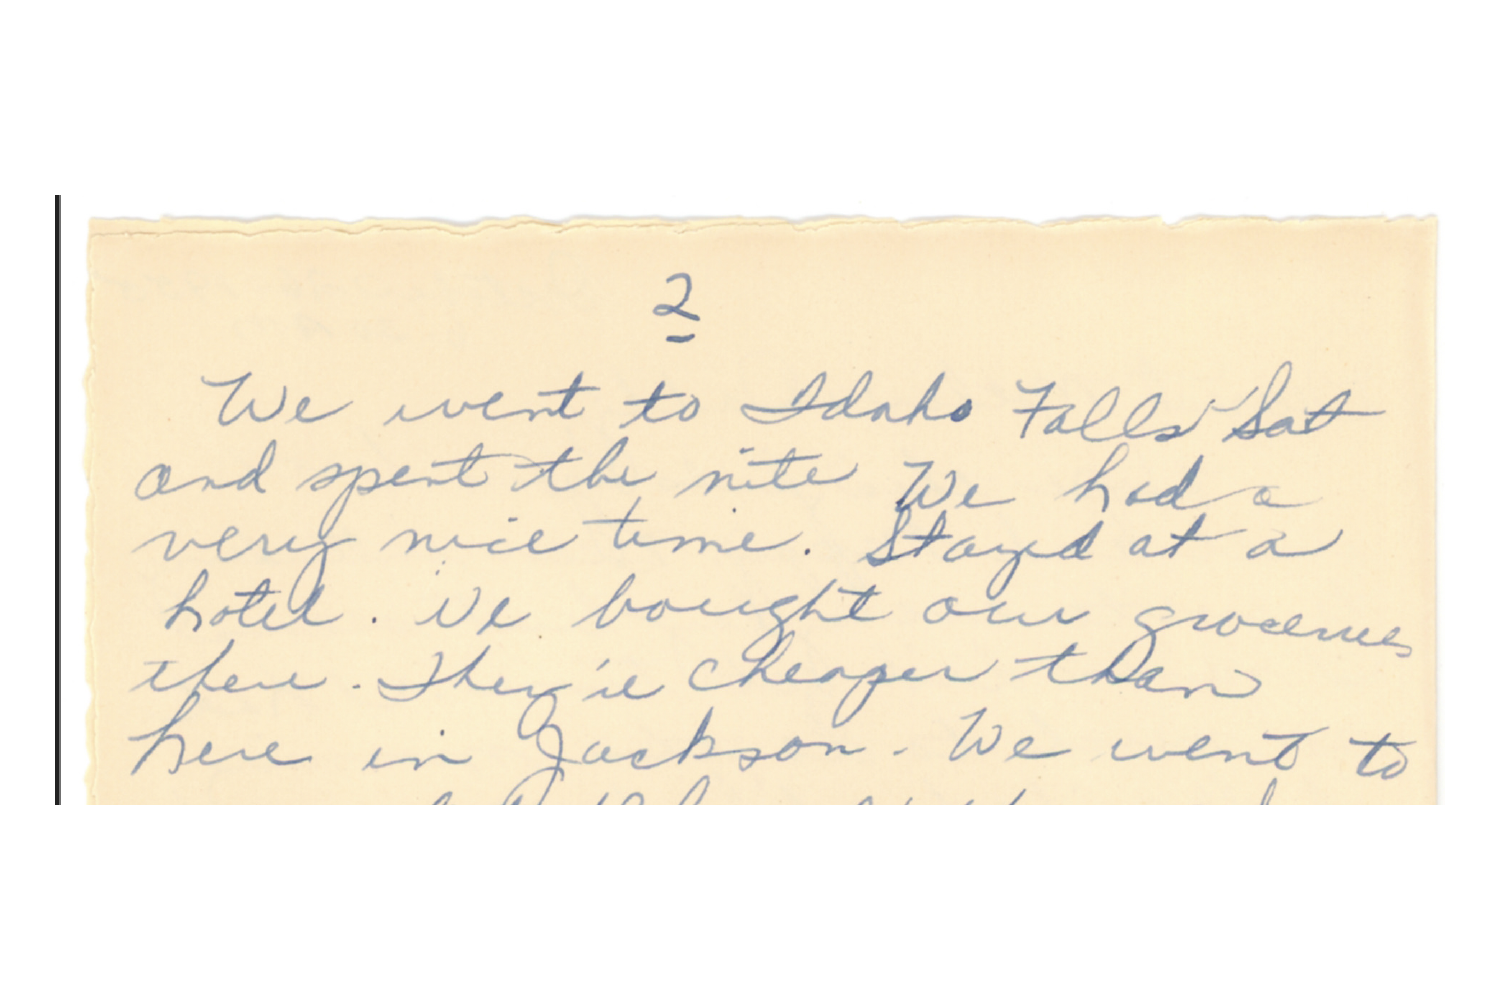 2
We went to Idaho Falls Sat
and spent the nite We had a
very nice time. Stayed at a
hotel. We bought our groceries
there. They're cheaper than
here in Jackson. We went to